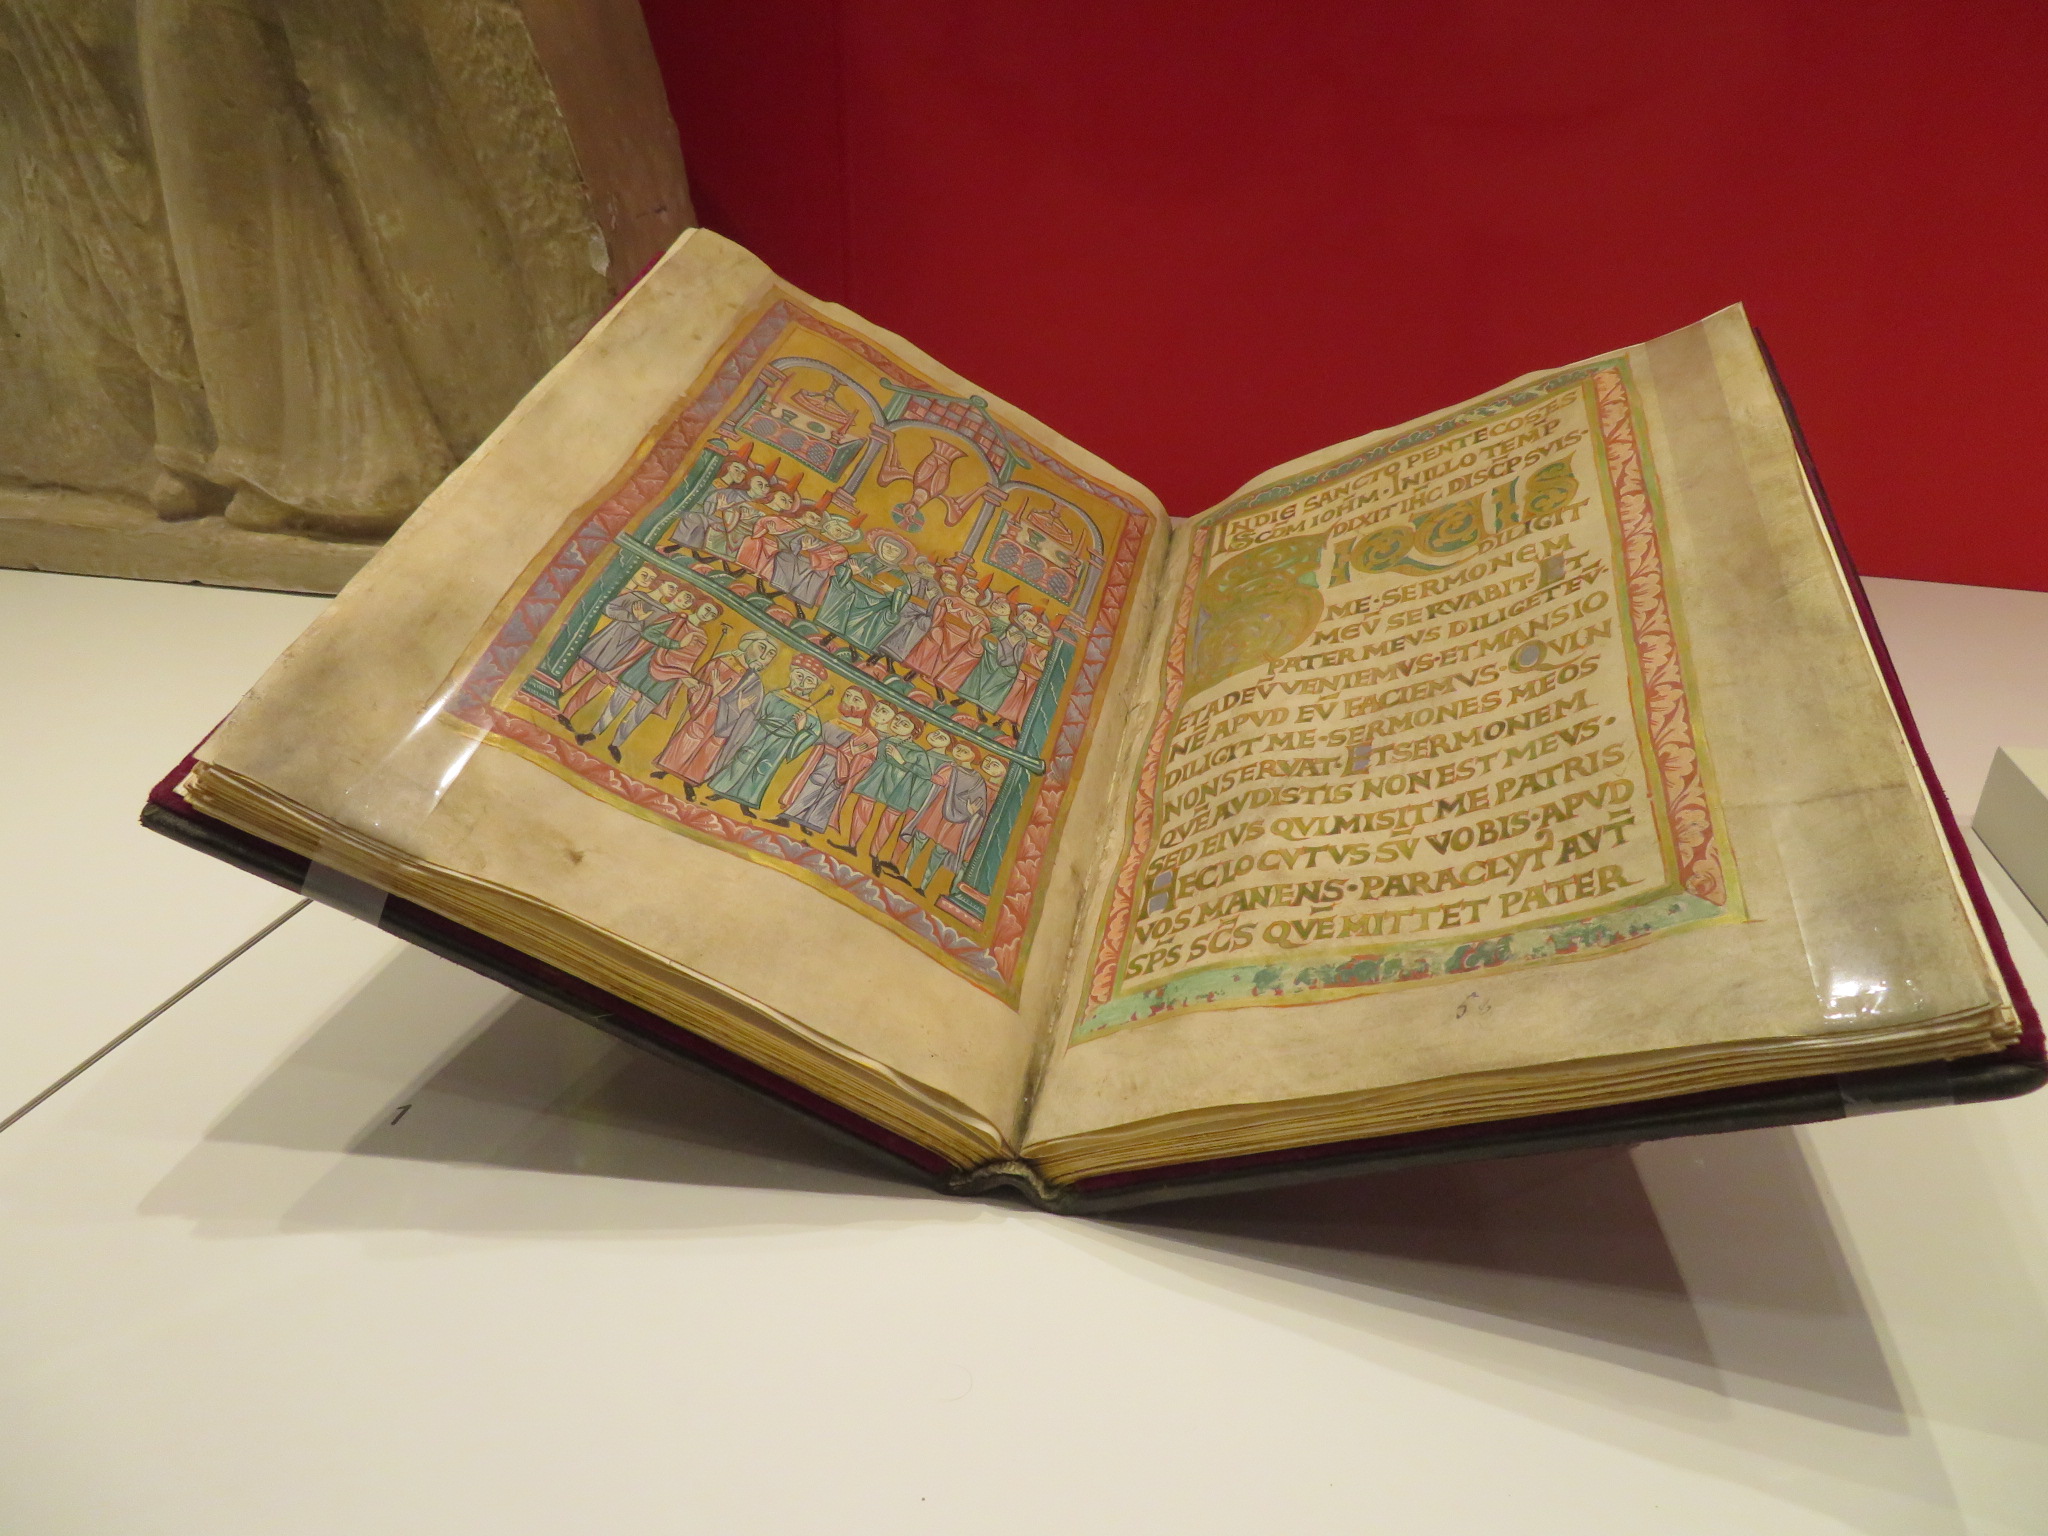 INDIE SANCTO PENTECOSES
SCŌM IOHM̄·INILLO TEMP
DIXIT IHC̄ DISCP̄ SVIS·
SIQUIS
DILIGIT
ME·SERMONEM
MEV̄ SERVABIT·ET
PATER MEVS DILIGET EV̄·
ETADEV̄ VENIEMVS·ET MANSIO
NE APVD EV̄ FACIEMVS·QVI N̄
DILIGIT ME·SERMONES MEOS
NONSERVAT·ET SERMONEM
QVĒ AVDISTIS NON EST MEVS·
SED EIVS QVI MISIT ME PATRIS
HEC LOCVTVS SV̄ VOBIS·APVD
VOS MANENS·PARACLYT' AVT̄
SP̄S SC̄S QVĒ MITTET PATER
1